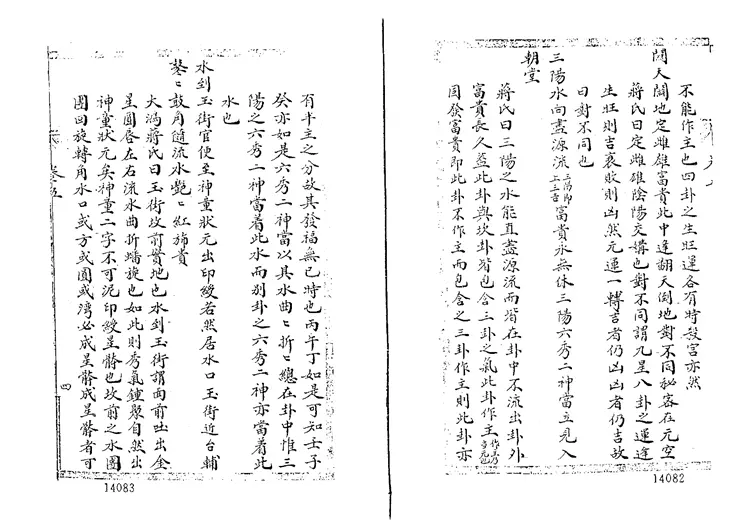 不能作主也四卦之生旺運各有時殺宮亦然
關天關地定雌雄富貴此中逢翻天倒地對不同秘密在元空
蔣氏曰定雌雄陰陽交媾也對不同謂九星八卦之運途
生旺則吉衰敗則凶然元運一轉吉者仍凶凶者仍吉故
曰對不同也
三陽水向盡源流富貴永無休三陽六秀二神當立見入
朝堂
蔣氏曰三陽之水能直盡源流而皆在卦中不流出卦外
富貴長久蓋此卦與坎卦皆包含三卦之氣此卦作主
因發富貴即此卦不作主而包含之三卦作主則此卦亦
14082
有半主之分故其發福無已時也丙午丁如是可知壬子
癸亦如是六秀二神當以其水曲〻折〻總在卦中惟三
陽之六秀二神當着此水而別卦之六秀二神亦當着此
水也
水到玉街官便至神童狀元出印綬若然居水口玉街近台輔
鼕〻鼓角隨流水艷〻紅旆貴
大鴻蔣氏曰玉街坎前貴地也水到玉街謂面前吐出金
星圓唇左右流水曲折蟠旋也如此則秀氣鍾聚自然出
神童狀元矣神童二字不可泥印綬星體也坎前之水團
團回旋轉角水口或方或圓或灣必成星體成星體者可
四
14083